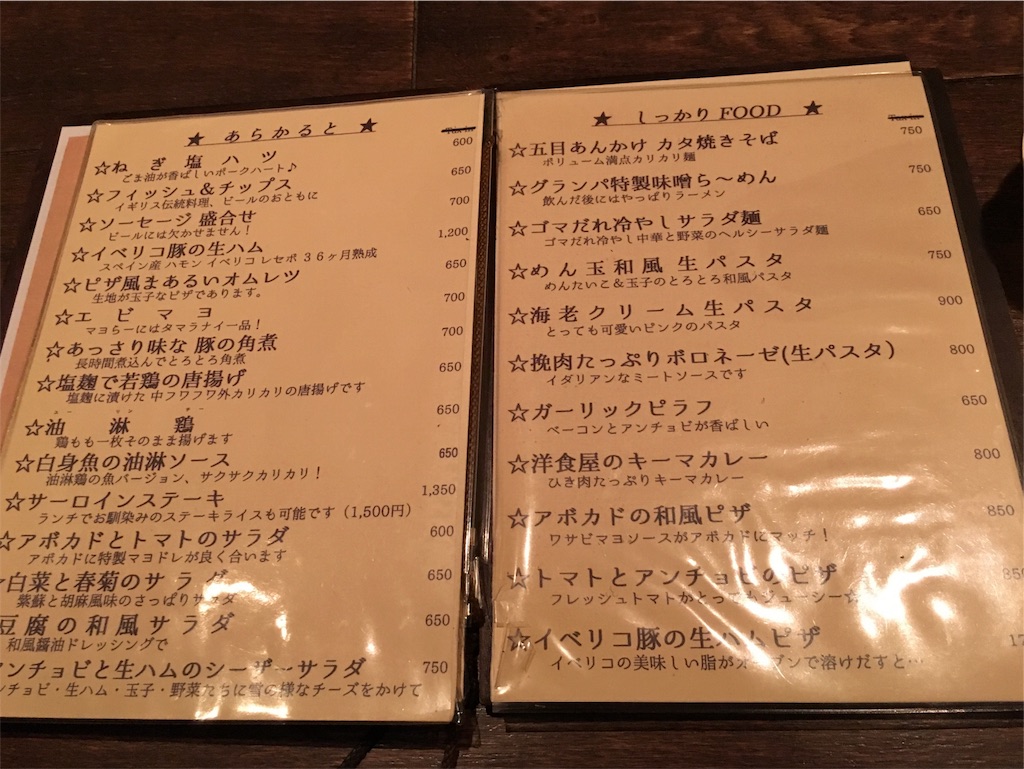 ★ あらかると ★
☆ねぎ塩ハツ 600
ごま油が香ばしいポークハート♪
☆フィッシュ＆チップス 650
イギリス伝統料理、ビールのおともに
☆ソーセージ 盛合せ 700
ビールには欠かせません！
☆イベリコ豚の生ハム 1,200
スペイン産 ハモン イベリコ レセボ ３６ヶ月熟成
☆ピザ風まあるいオムレツ 650
生地が玉子なピザであります。
☆エビマヨ 700
マヨらーにはタマラナイ一品！
☆あっさり味な 豚の角煮 700
長時間煮込んでとろとろ角煮
☆塩麹で若鶏の唐揚げ 650
塩麹に漬けた 中フワフワ外カリカリの唐揚げです
ユー リン チー
☆油淋鶏 650
鶏もも一枚そのまま揚げます
☆白身魚の油淋ソース 650
油淋鶏の魚バージョン、サクサクカリカリ！
☆サーロインステーキ 1,350
ランチでお馴染みのステーキライスも可能です（1,500円）
☆アボカドとトマトのサラダ 600
アボカドに特製マヨドレが良く合います
白菜と春菊のサラダ 650
紫蘇と胡麻風味のさっぱりサラダ
豆腐の和風サラダ 650
和風醤油ドレッシングで
アンチョビと生ハムのシーザーサラダ 750
ンチョビ・生ハム・玉子・野菜たちに雪の様なチーズをかけて
★ しっかり FOOD ★
☆五目あんかけ カタ焼きそば 750
ボリューム満点カリカリ麺
☆グランパ特製味噌ら〜めん 750
飲んだ後にはやっぱりラーメン
☆ゴマだれ冷やしサラダ麺 650
ゴマだれ冷やし中華と野菜のヘルシーサラダ麺
☆めん玉和風 生パスタ 750
めんたいこ＆玉子のとろとろ和風パスタ
☆海老クリーム生パスタ 900
とっても可愛いピンクのパスタ
☆挽肉たっぷりボロネーゼ(生パスタ) 800
イダリアンなミートソースです
☆ガーリックピラフ 650
ベーコンとアンチョビが香ばしい
☆洋食屋のキーマカレー 800
ひき肉たっぷりキーマカレー
☆アボカドの和風ピザ 850
ワサビマヨソースがアボカドにマッチ！
☆トマトとアンチョビのピザ 850
フレッシュトマトがとってもジューシー☆
☆イベリコ豚の生ハムピザ
イベリコの美味しい脂がオーブンで溶けだすと…